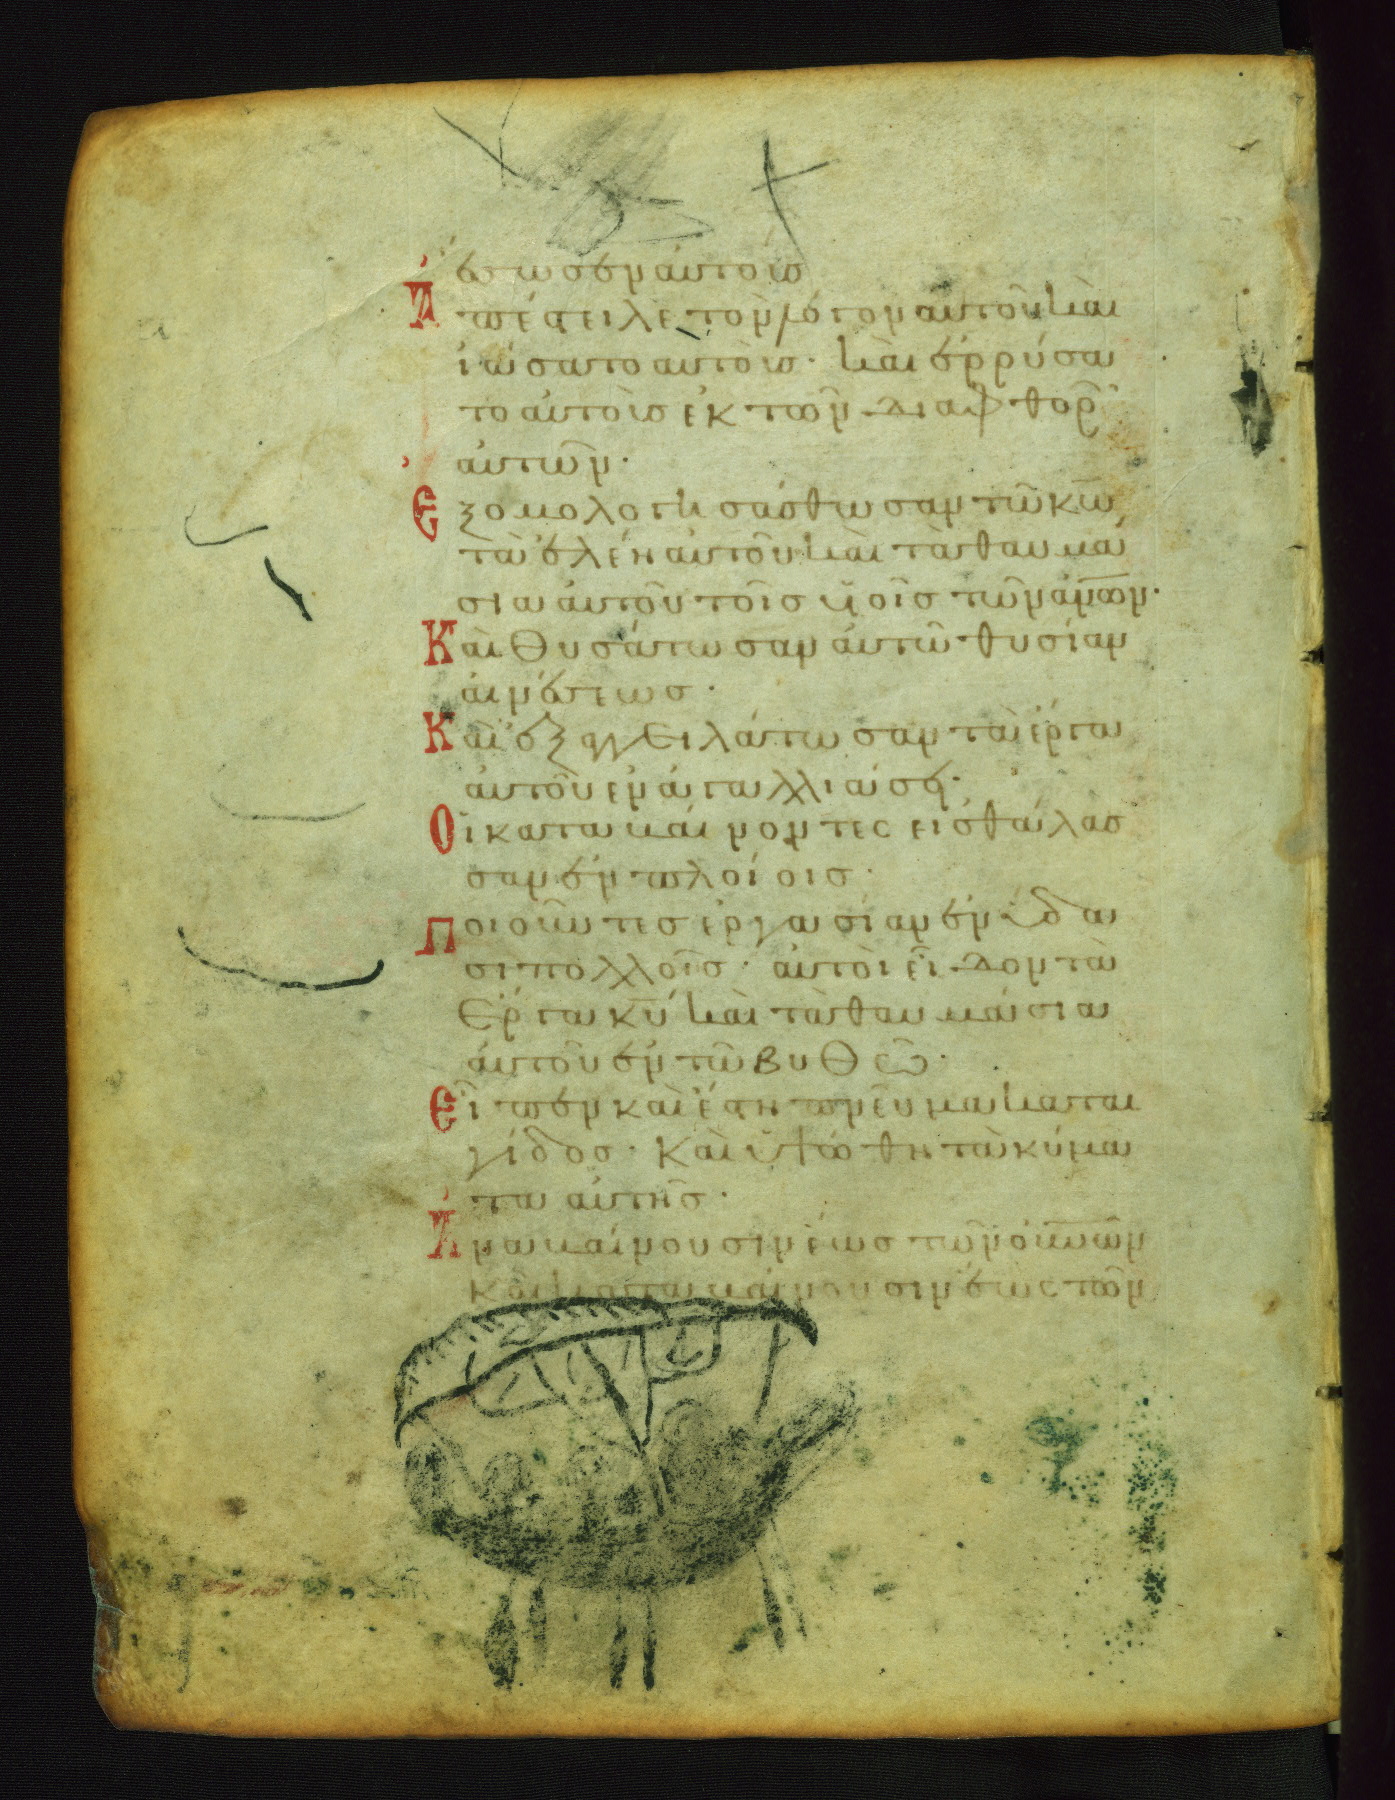 ἔσωσεν αυτοὺσ
Ἀπέστειλε τὸν λόγον αυτοῦ καὶ
ἰάσατο αυτοὺσ· καὶ ἐρρύσα
το ἀυτοὺσ ἐκ τῶν διαφθορῶ
ἀυτῶν·
Ἐξομολογησάσθωσαν τῶ κω̅
τὰ ἐλέη αυτοῦ καὶ τὰ θαυμά
σια ἀυτοῦ τοῖσ ὑιοῖσ τῶν ἀν̅ων·
Καὶ θυσάτωσαν ἀυτῶ θυσίαν
αἰνέσεωσ·
Καὶ ἐξαγγειλάτωσαν τὰ ἔργα
ἀυτοῦ ἐν ἀγαλλιάσει·
Οἱ καταβαίνοντεσ εισ θάλασ
σαν ἐν πλοίοισ·
Ποιοῦντεσ ἐργασίαν ἐν ὕδα
σι πολλοῖσ· ἀυτοὶ εἶδον τὰ
ἔργα κυ̅ καὶ τὰ θαυμάσια
ἀυτοῦ ἐν τῶ βυθῶ·
Εἶπεν καὶ ἔστη πνεῦμα καται
γίδοσ· καὶ ὑψώθη τὰ κύμα
τα αὐτῆσ·
Ἀναβαίνουσιν ἕωσ τῶν ου̅νων
καὶ καταβαίνουσιν ἕωσ τῶν